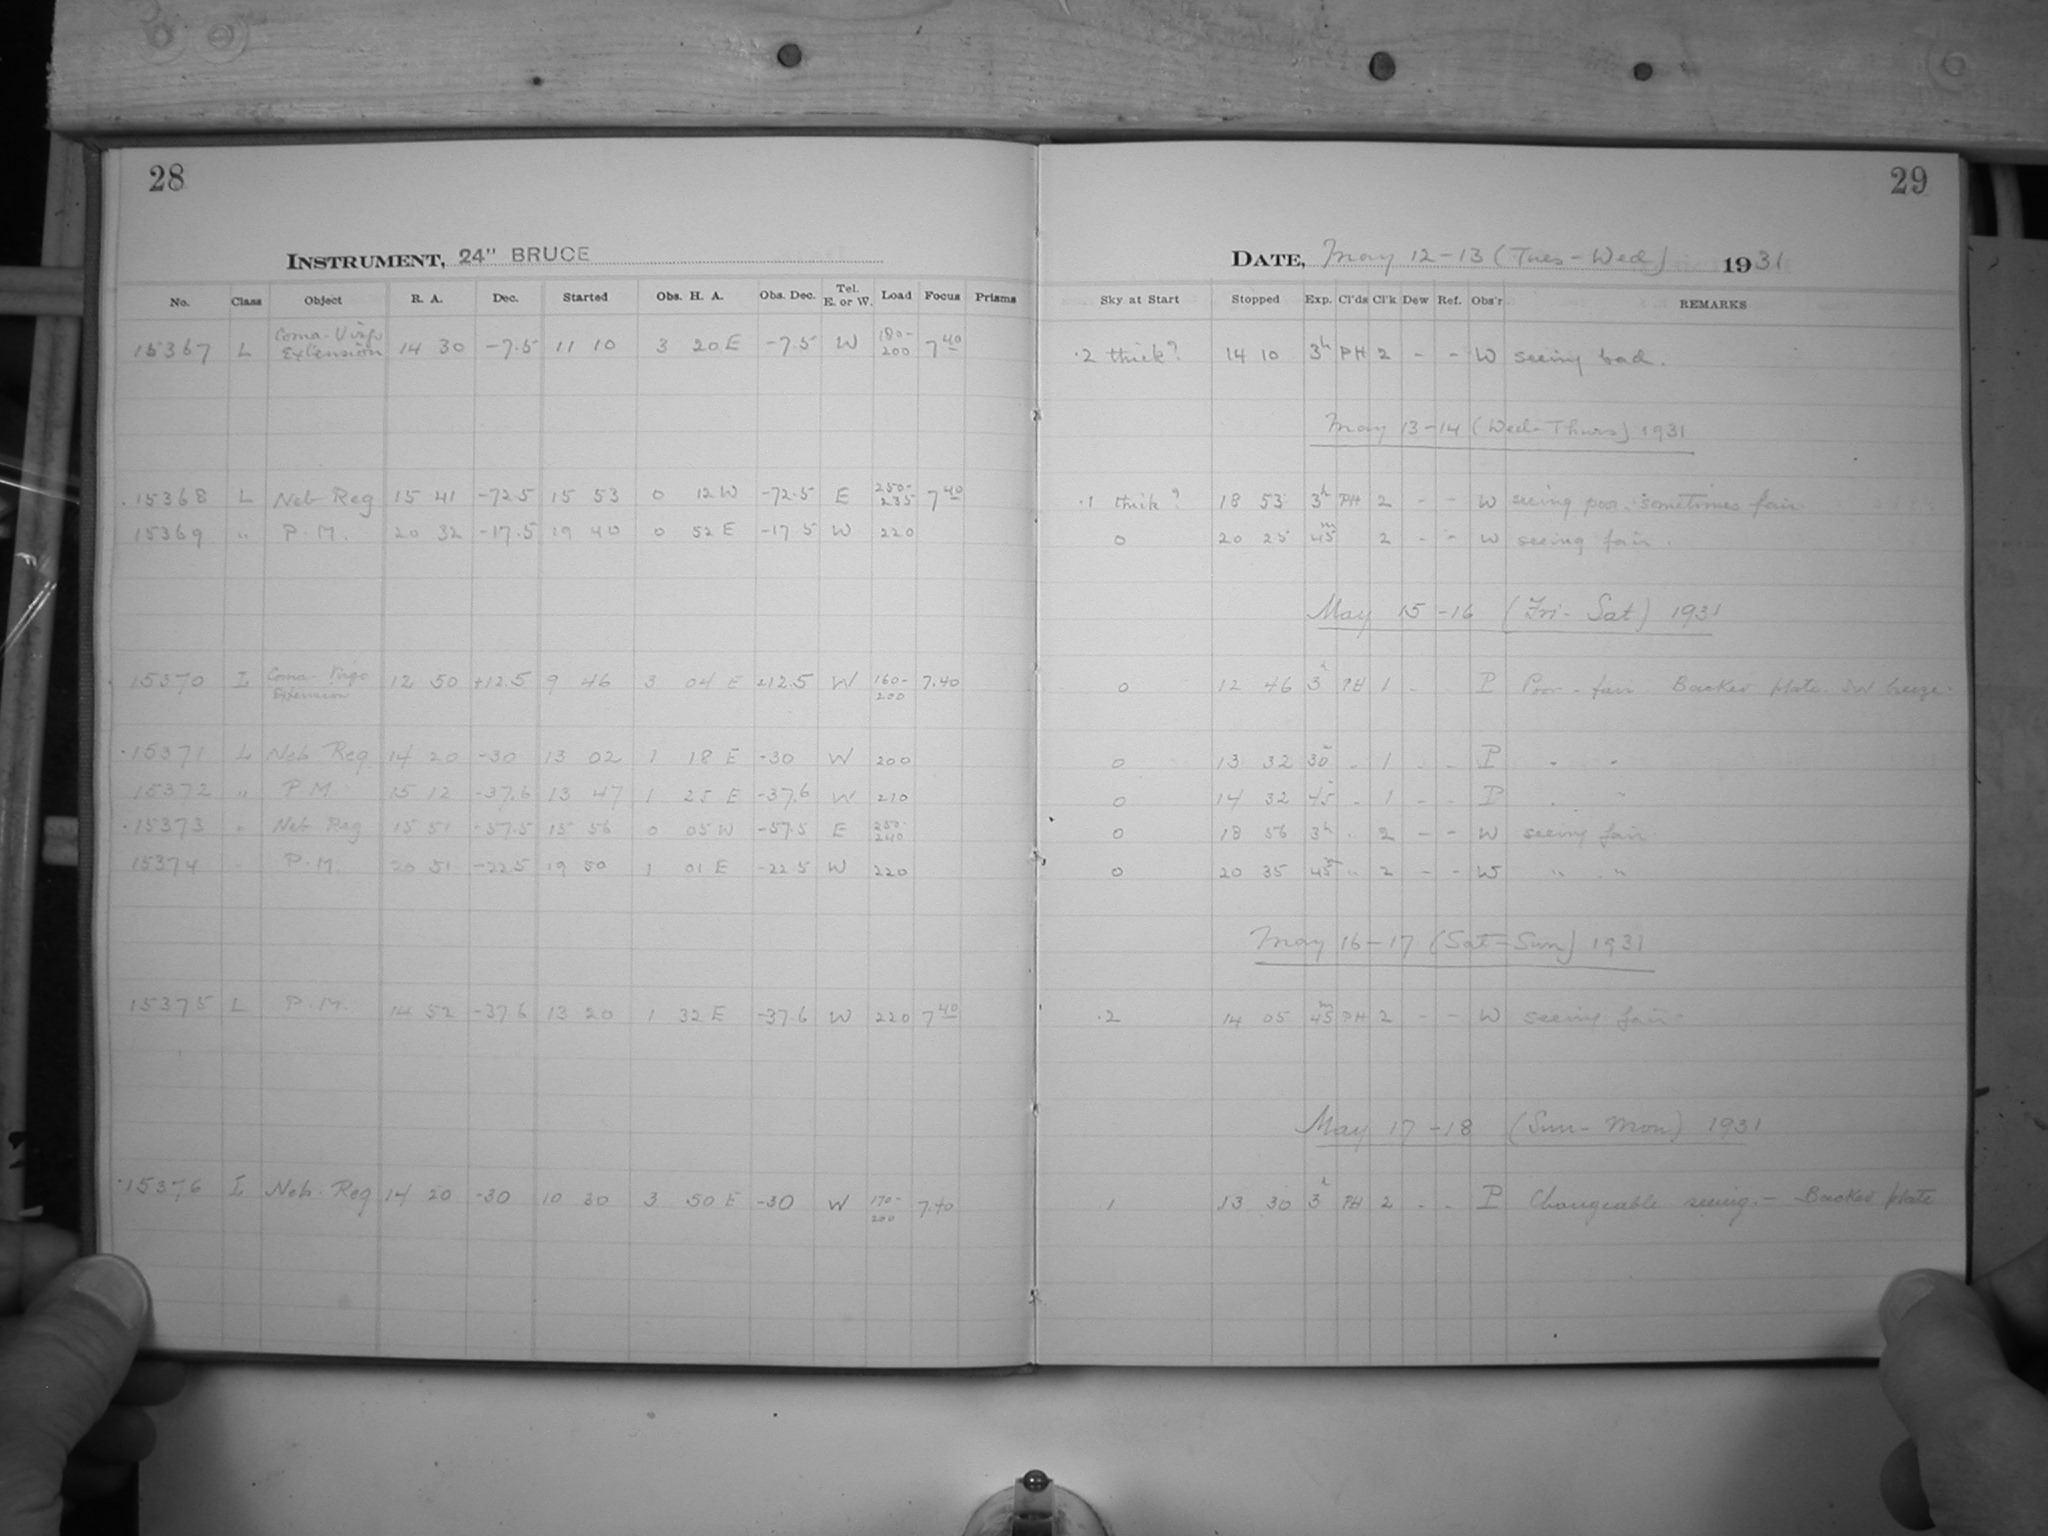 28
29
INSTRUMENT, 24" BRUCE
DATE, May 12-13 (Tues-Wed) 1931
No. Class Object R. A. Dec. Started Obs. H. A. Obs. Dec. Tel. E. or W. Load Focus Prisms Sky at Start Stopped Exp. Cl'ds Cl'k Dew Ref. Obs'r REMARKS
15367 L Coma-Virgo Extension 14 30 -7.5 11 10 3 20 E -7.5 W 180-200 7 40 .2 thick? 14 10 3h PH 2 - - W seeing bad.
May 13-14 (Wed-Thurs) 1931
.15368 L Neb Reg 15 41 -72.5 15 53 0 12 W -72.5 E 250-235 7 40 .1 thick? 18 53 3h PH 2 - - W seeing poor sometimes fair
15369 " P.M. 20 32 -17.5 19 40 0 52 E -17.5 W 220 0 20 25 45m 2 - - W seeing fair.
May 15-16 (Fri-Sat) 1931
15370 I Coma-Virgo Extension 12 50 +12.5 9 46 3 04 E +12.5 W 160-200 7.40 0 12 46 3h PH 1 - - P Poor-fair. Backed plate. SW breeze.
.15371 L Neb Reg 14 20 -30 13 02 1 18 E -30 W 200 0 13 32 30m " 1 - - P " "
15372 " P.M. 15 12 -37.6 13 47 1 25 E -37.6 W 210 0 14 32 45 " 1 - - P " "
.15373 " Neb Reg 15 51 -57.5 15 56 0 05 W -57.5 E 250-240 0 18 56 3h " 2 - - W seeing fair
15374 " P.M. 20 51 -22.5 19 50 1 01 E -22.5 W 220 0 20 35 45m " 2 - - W " "
May 16-17 (Sat-Sun) 1931
15375 L P.M. 14 52 -37.6 13 20 1 32 E -37.6 W 220 7 40 .2 14 05 45m PH 2 - - W seeing fair
May 17-18 (Sun-Mon) 1931
.15376 I Neb. Reg 14 20 -30 10 30 3 50 E -30 W 170-200 7.40 .1 13 30 3h PH 2 - - P Changeable seeing. - Backed plate